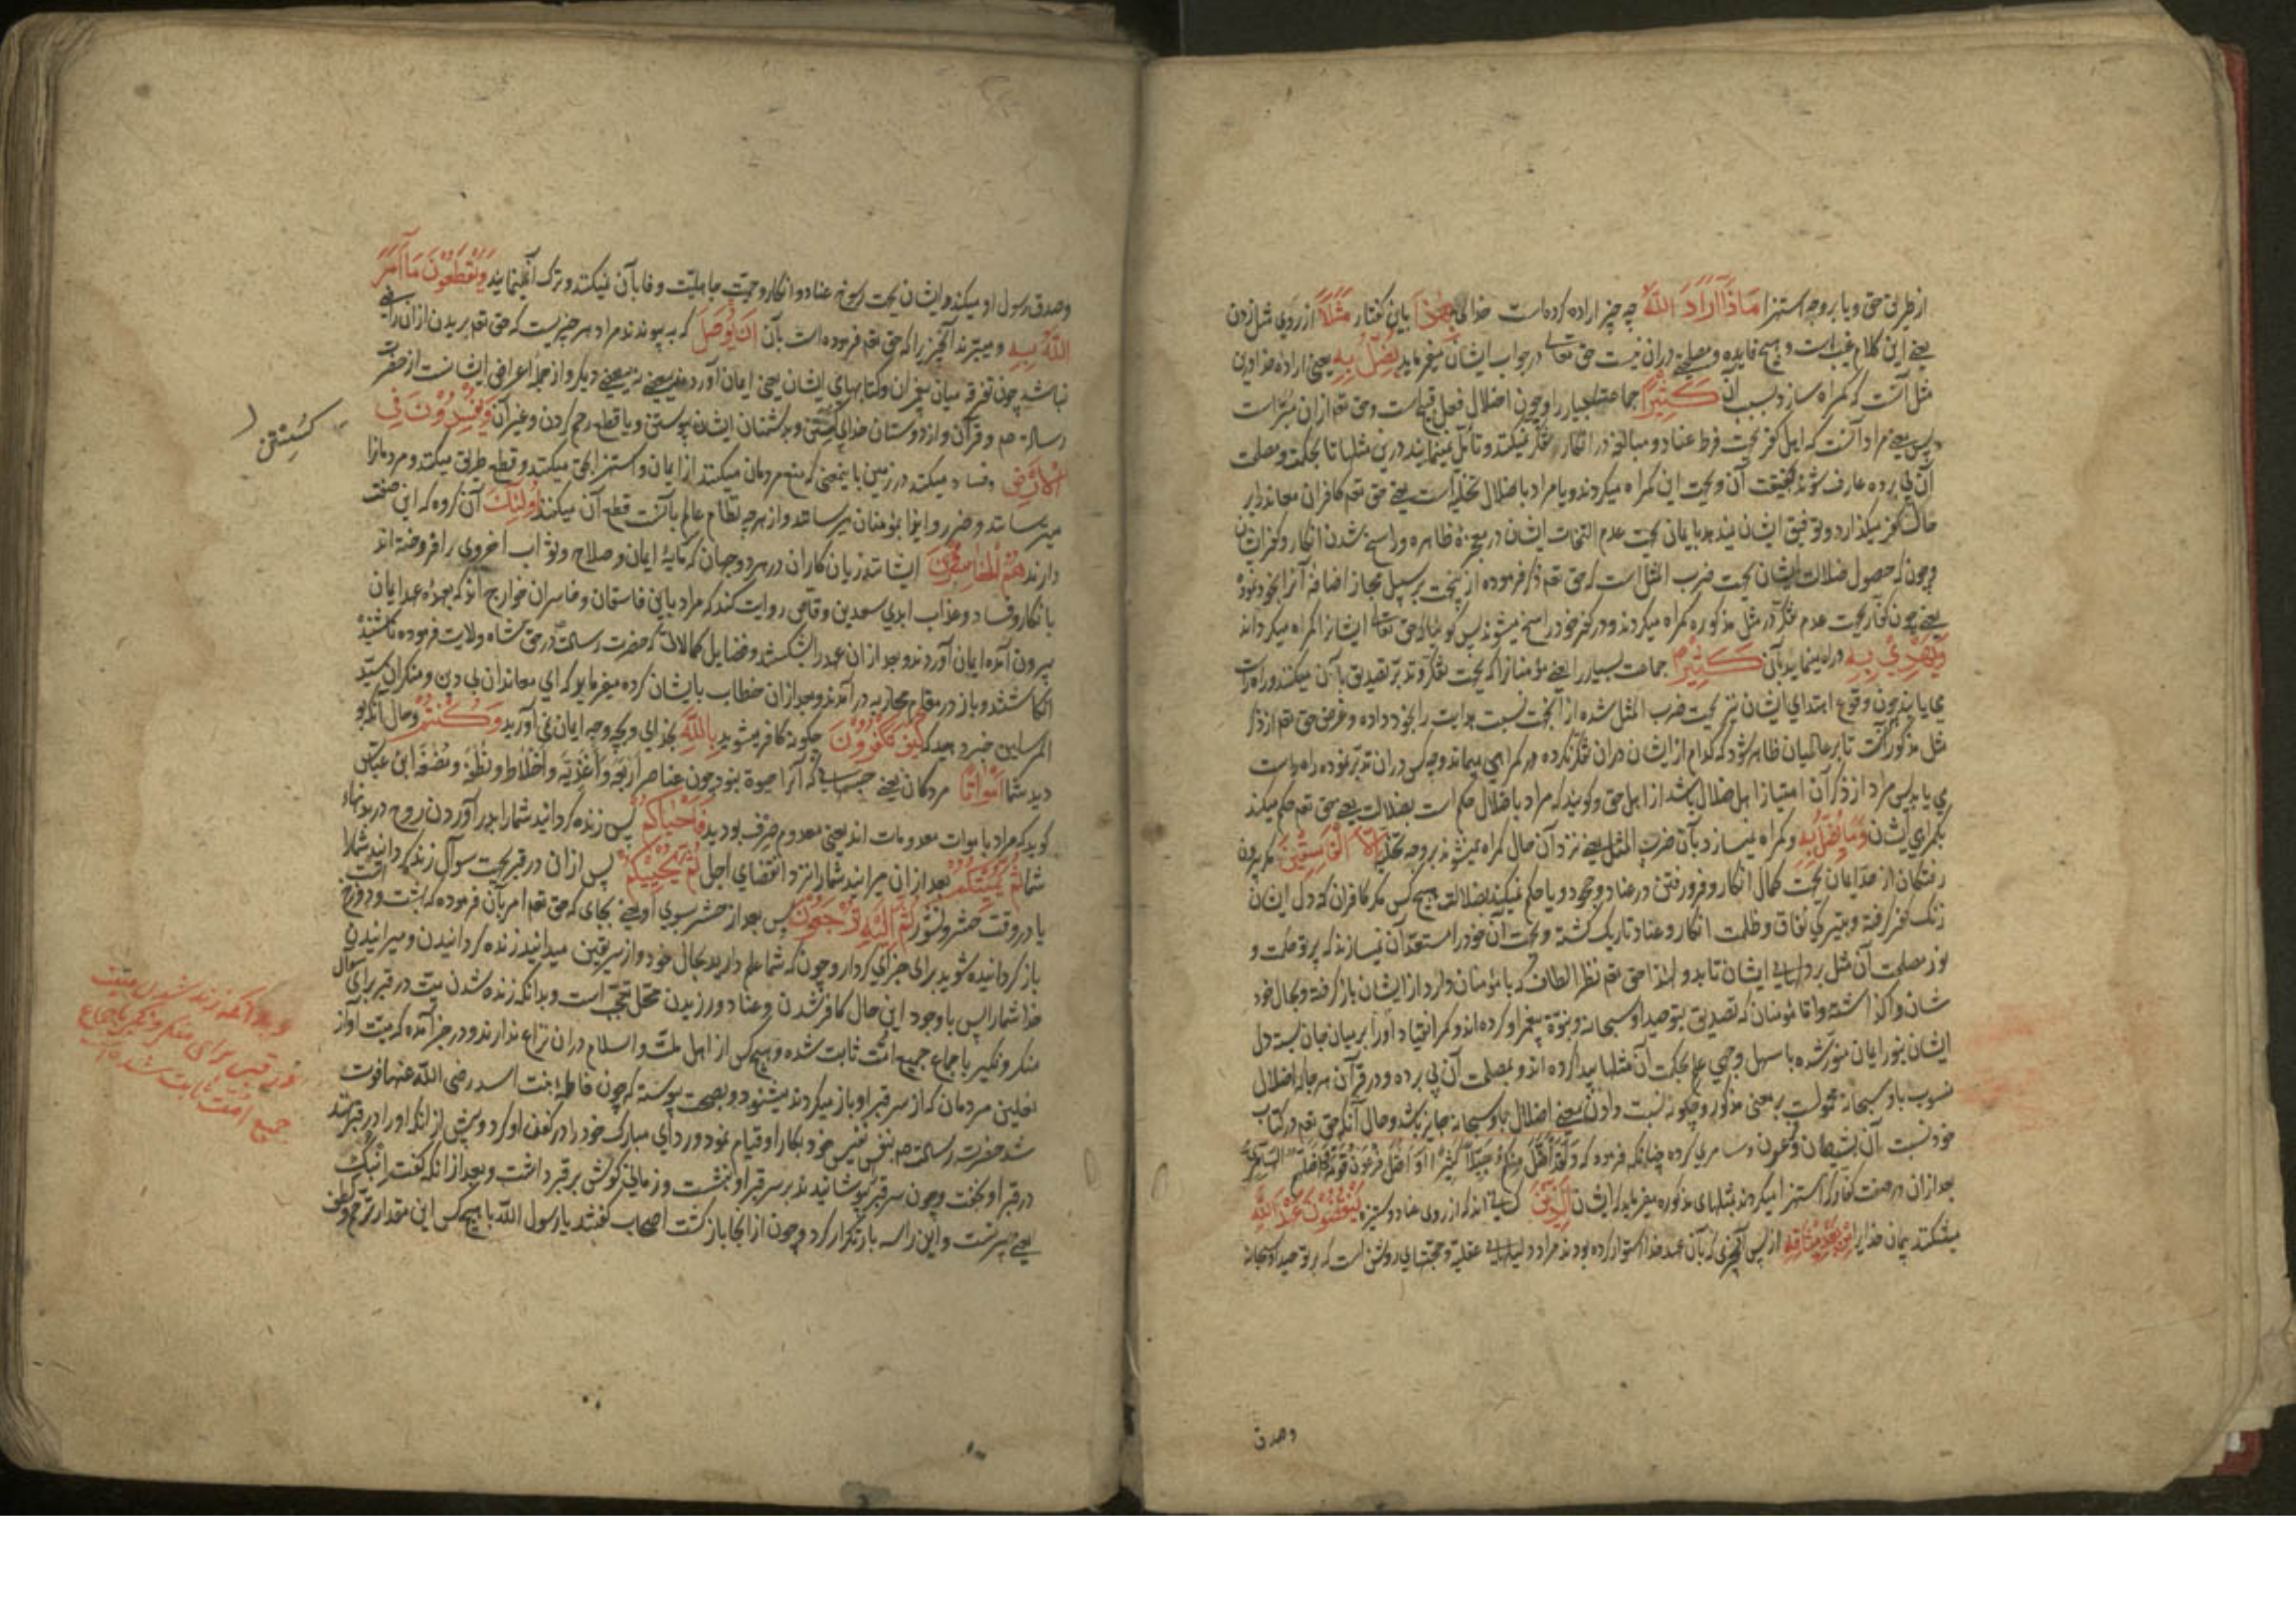 از طریق حق و یا بر وجه استهزا مَاذَا اَرَادَ اللّٰهُ چه چیز اراده کرده است خدای بِهٰذَا باین کفتار مَثَلًا از روی مثل زدن
یعنی این کلام عبث است و هیچ فایده و مصلحتی در ان نیست حق تعالی در جواب ایشان میفرماید یُضِلُّ بِهٖ یعنی اراده خدا ازین
مثل آنست که کمراه سازد بسبب آن کَثِیْرًا جماعت بسیار را و چون اضلال فعل قبیح است و حق تعم ازان مبراست
پس معنی مراد آنست که اهل کفر بجهت فرط عناد و مبالغه در انکار تفکر نمیکنند و تأمل نمینمایند درین مثلها تا بحکمت و مصلحت
آن پی برده عارف شوند بحقیقت آن و بجهت این کمراه میکردند و یا مراد باضلال تخلیه است یعنی حق تعم کافران معاند را بر
حال کفر میکذارد و توفیق ایشان نمیدهد بایمان بجهت عدم التفات ایشان در معجزه ظاهره و راسخ شدن انکار و کفر ایشان
و چون که حصول ضلالت ایشان بجهت ضرب المثل است که حق تعم ذکر فرموده از ینجهت بر سبیل مجاز اضافه آنرا بخود نموده
یعنی چون کفار بجهت عدم تفکر در مثل مذکوره کمراه میکردند و در کفر خود راسخ میشوند پس کوئیا که حق تعالی ایشانرا کمراه میکرداند
وَیَهْدِیْ بِهٖ و راه مینماید بآن کَثِیْرًا جماعت بسیار را یعنی مؤمنانرا که بجهت تفکر و تدبر تصدیق بآن میکنند و راه راست
می یابند چون وقوع اهتدای ایشان نیز بجهت ضرب المثل شده از آنجهت نسبت هدایت را بخود داده و غرض حق تعم از ذکر
مثل مذکور آنست تا بر عالمیان ظاهر شود که کدام از ایشان دران تفکر نکرده در کمراهی میماند و چه کس دران تدبر نموده راه راست
می یابد پس مراد از ذکر آن امتیاز اهل ضلال باشد از اهل حق و کویند که مراد باضلال حکم است بضلالت یعنی حق تعم حکم میکند
بکمراهی ایشان وَمَا یُضِلُّ بِهٖ و کمراه نمیسازد بآن ضرب المثل یعنی نزد آن حال کمراه نمیشوند بر وجه تخلیه اِلَّا الْفَاسِقِیْنَ مکر بیرون
رفتکان از حد ایمان بجهت کمال انکار و فرو رفتن در عناد و جحود و یا حکم نمیکند بضلالت هیچ کس مکر کافران که دل ایشان
زنک کفر کرفته و بتیرکی نفاق و ظلمت انکار و عناد تاریک کشته و بجهت آن خود را مستعد آن نمیسازند که پرتو حکمت و
نور مصلحت آن مثل بر دلهای ایشان تابد و لهذا حق تعم نظر الطاف که با مؤمنان دارد از ایشان باز کرفته و بحال خود
شان واکذاشته و اما مؤمنان که تصدیق بتوحید او سبحانه و نبوة پیغمبر او کرده اند و کمر انقیاد او را بر میان جان بسته دل
ایشان بنور ایمان منور شده با سهل وجهی علم بحکمت آن مثلها پیدا کرده اند و بمصلحت آن پی برده و در قرآن هر جا که اضلال
منسوب باو سبحانه محمول است بر معنی مذکور و چکونه نسبت دادن معنی اضلال باو سبحانه جایز باشد و حال آنکه حق تعم در کتاب
خود نسبت آن بشیطان و فرعون و سامری کرده چنانکه فرموده که وَلَقَدْ اَضَلَّ مِنْکُمْ جِبِلًّا کَثِیْرًا وَاَضَلَّ فِرْعَوْنُ قَوْمَهٗ وَاَضَلَّهُمُ السَّامِرِیُّ
بعد ازان در صفت کفار که استهزا میکردند بمثلهای مذکوره میفرماید که ایشان اَلَّذِیْنَ کسانی اند که از روی عناد و ستیزه یَنْقُضُوْنَ عَهْدَ اللّٰهِ
میشکنند پیمان خدایرا مِنْ بَعْدِ مِیْثَاقِهٖ از پس آنچیزی که بآن عهد خدا استوار کرده بودند مراد دلیلهای عقلیه و حجتهای روشن است که بر توحید او سبحانه
وصدق
وصدق رسول او میکنند و ایشان بجهت رسوخ عناد و انکار و حمیت جاهلیت وفا بآن نمیکنند و ترک آن مینمایند وَیَقْطَعُوْنَ مَا اَمَرَ
اللّٰهُ بِهٖ و میبرند آنچیز را که حق تعم فرموده است بآن اَنْ یُوْصَلَ که به پیوندند مراد هر چیزیست که حق تعم ببریدن ازان راضی
نباشد چون تفرقه میان پیغمبران و کتابهای ایشان یعنی ایمان آوردن ببعضی نه ببعضی دیکر و از جمله اعراض ایشانست از حضرت
رسالة صم و قرآن و از دوستان خدای کسستن و بدشمنان ایشان پیوستن و یا قطع رحم کردن و غیر آن وَیُفْسِدُوْنَ فِی
الْاَرْضِ و فساد میکنند در زمین باینمعنی که منع مردمان میکنند از ایمان و استهزا بحق میکنند و قطع طریق میکنند و مردمانرا
میترسانند و ضرر و ایذا بمؤمنان میرسانند و از هرچه نظام عالم بآنست قطع آن میکنند اُولٰئِکَ آن کروه که این صفت
دارند هُمُ الْخَاسِرُوْنَ ایشانند زیان کاران در هر دو جهان که مایهٔ ایمان و صلاح و ثواب اخروی را فروخته اند
بانکار و فساد و عذاب ابدی سعد بن وقاص روایت کند که مراد باین فاسقان و خاسران خوارج اند که بعهدهٔ عهد ایمان
بیرون آمده ایمان آوردند و بعد ازان عهد را بشکستند و فضایل و کمالات که حضرت رسالت در حق شاه ولایت فرموده ناشنیده
انکاشتند و باز در مقام محاربه در آمدند و بعد ازان خطاب بایشان کرده میفرماید که ای معاندان بی دین و منکران سید
المرسلین خبر دهید که کَیْفَ تَکْفُرُوْنَ چکونه کافر میشوید بِاللّٰهِ بخدای و بچه وجه ایمان نمی آورید وَکُنْتُمْ و حال آنکه بو
دید شما اَمْوَاتًا مردکان یعنی جسمهایی که آنرا حیوة نبود چون عناصر اربعه و اغذیه و اخلاط و نطفه و مضغه ابن عباس
کوید که مراد باموات معدومات اند یعنی معدوم صرف بودید فَاَحْیَاکُمْ پس زنده کردانید شما را بدر آوردن روح در بدنهاء
شما ثُمَّ یُمِیْتُکُمْ بعد ازان میراند شما را نزد انقضای اجل ثُمَّ یُحْیِیْکُمْ پس ازان در قبر بجهت سوآل زنده کرداند شما را
یا در وقت حشر و نشور ثُمَّ اِلَیْهِ تُرْجَعُوْنَ پس بعد از حشر بسوی او یعنی بجای که حق تعم امر بآن فرموده که بهشت و دوزخ است
باز کردانیده شوید برای جزای کردار و چون که شما علم دارید بحال خود و از سر یقین میدانید زنده کردانیدن و میرانیدن
خدا شما را پس با وجود این حال کافر شدن و عناد ورزیدن محل تعجب است و بدانکه زنده شدن میت در قبر برای سوآل
منکر و نکیر باجماع جمیع امت ثابت شده و هیچ کس از اهل ملت و اسلام دران نزاع ندارند و در خبر آمده که میت آواز
نعلین مردمان که از سر قبر او باز میکردند میشنود و بصحت پیوسته که چون فاطمه بنت اسد رضی اللّٰه عنها فوت
شد حضرت رسالت صم بنفس نفیس خود بکار او قیام نمود و ردای مبارک خود را در کفن او کرد و پیش از انکه او را در قبر نهند
در قبر او بخفت و چون سر قبر بپوشانیدند بر سر قبر او بنشست و زمانی کوش بر قبر داشت و بعد ازانکه کفت ابنک
یعنی پسرتست و این را سه بار تکرار کرد و چون از انجا باز کشت اصحاب کفتند یا رسول اللّٰه با هیچ کس این مقدار ترحم و لطف
کسستن
و بدانکه زنده شدن میت
در قبر برای منکر و نکیر باجماع
جمیع امت ثابت شده است